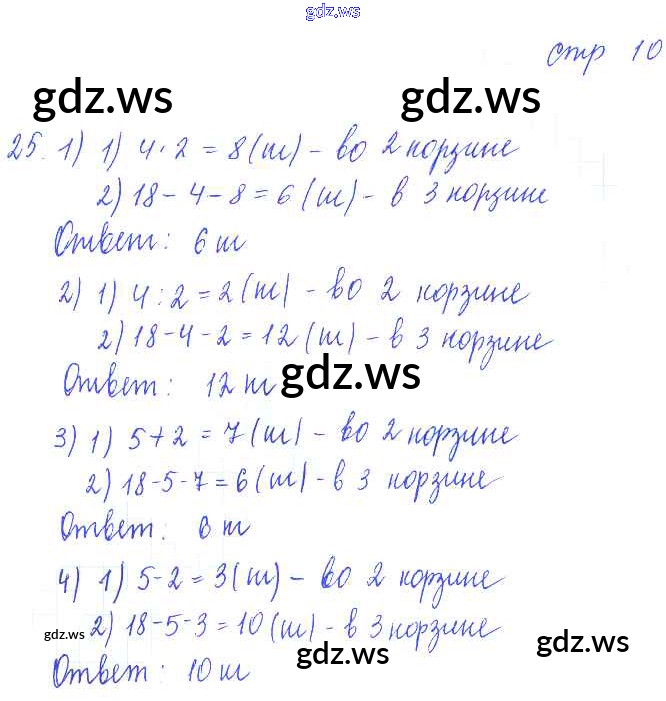 gdz.ws
стр 10
gdz.ws gdz.ws
25. 1) 1) 4·2 = 8 (ш) - во 2 корзине
2) 18 - 4 - 8 = 6 (ш) - в 3 корзине
Ответ: 6 ш
2) 1) 4 : 2 = 2 (ш) - во 2 корзине
2) 18 - 4 - 2 = 12 (ш) - в 3 корзине
Ответ: 12 ш
gdz.ws
3) 1) 5 + 2 = 7 (ш) - во 2 корзине
2) 18 - 5 - 7 = 6 (ш) - в 3 корзине
Ответ: 6 ш
4) 1) 5 - 2 = 3 (ш) - во 2 корзине
gdz.ws 2) 18 - 5 - 3 = 10 (ш) - в 3 корзине
gdz.ws gdz.ws
Ответ: 10 ш